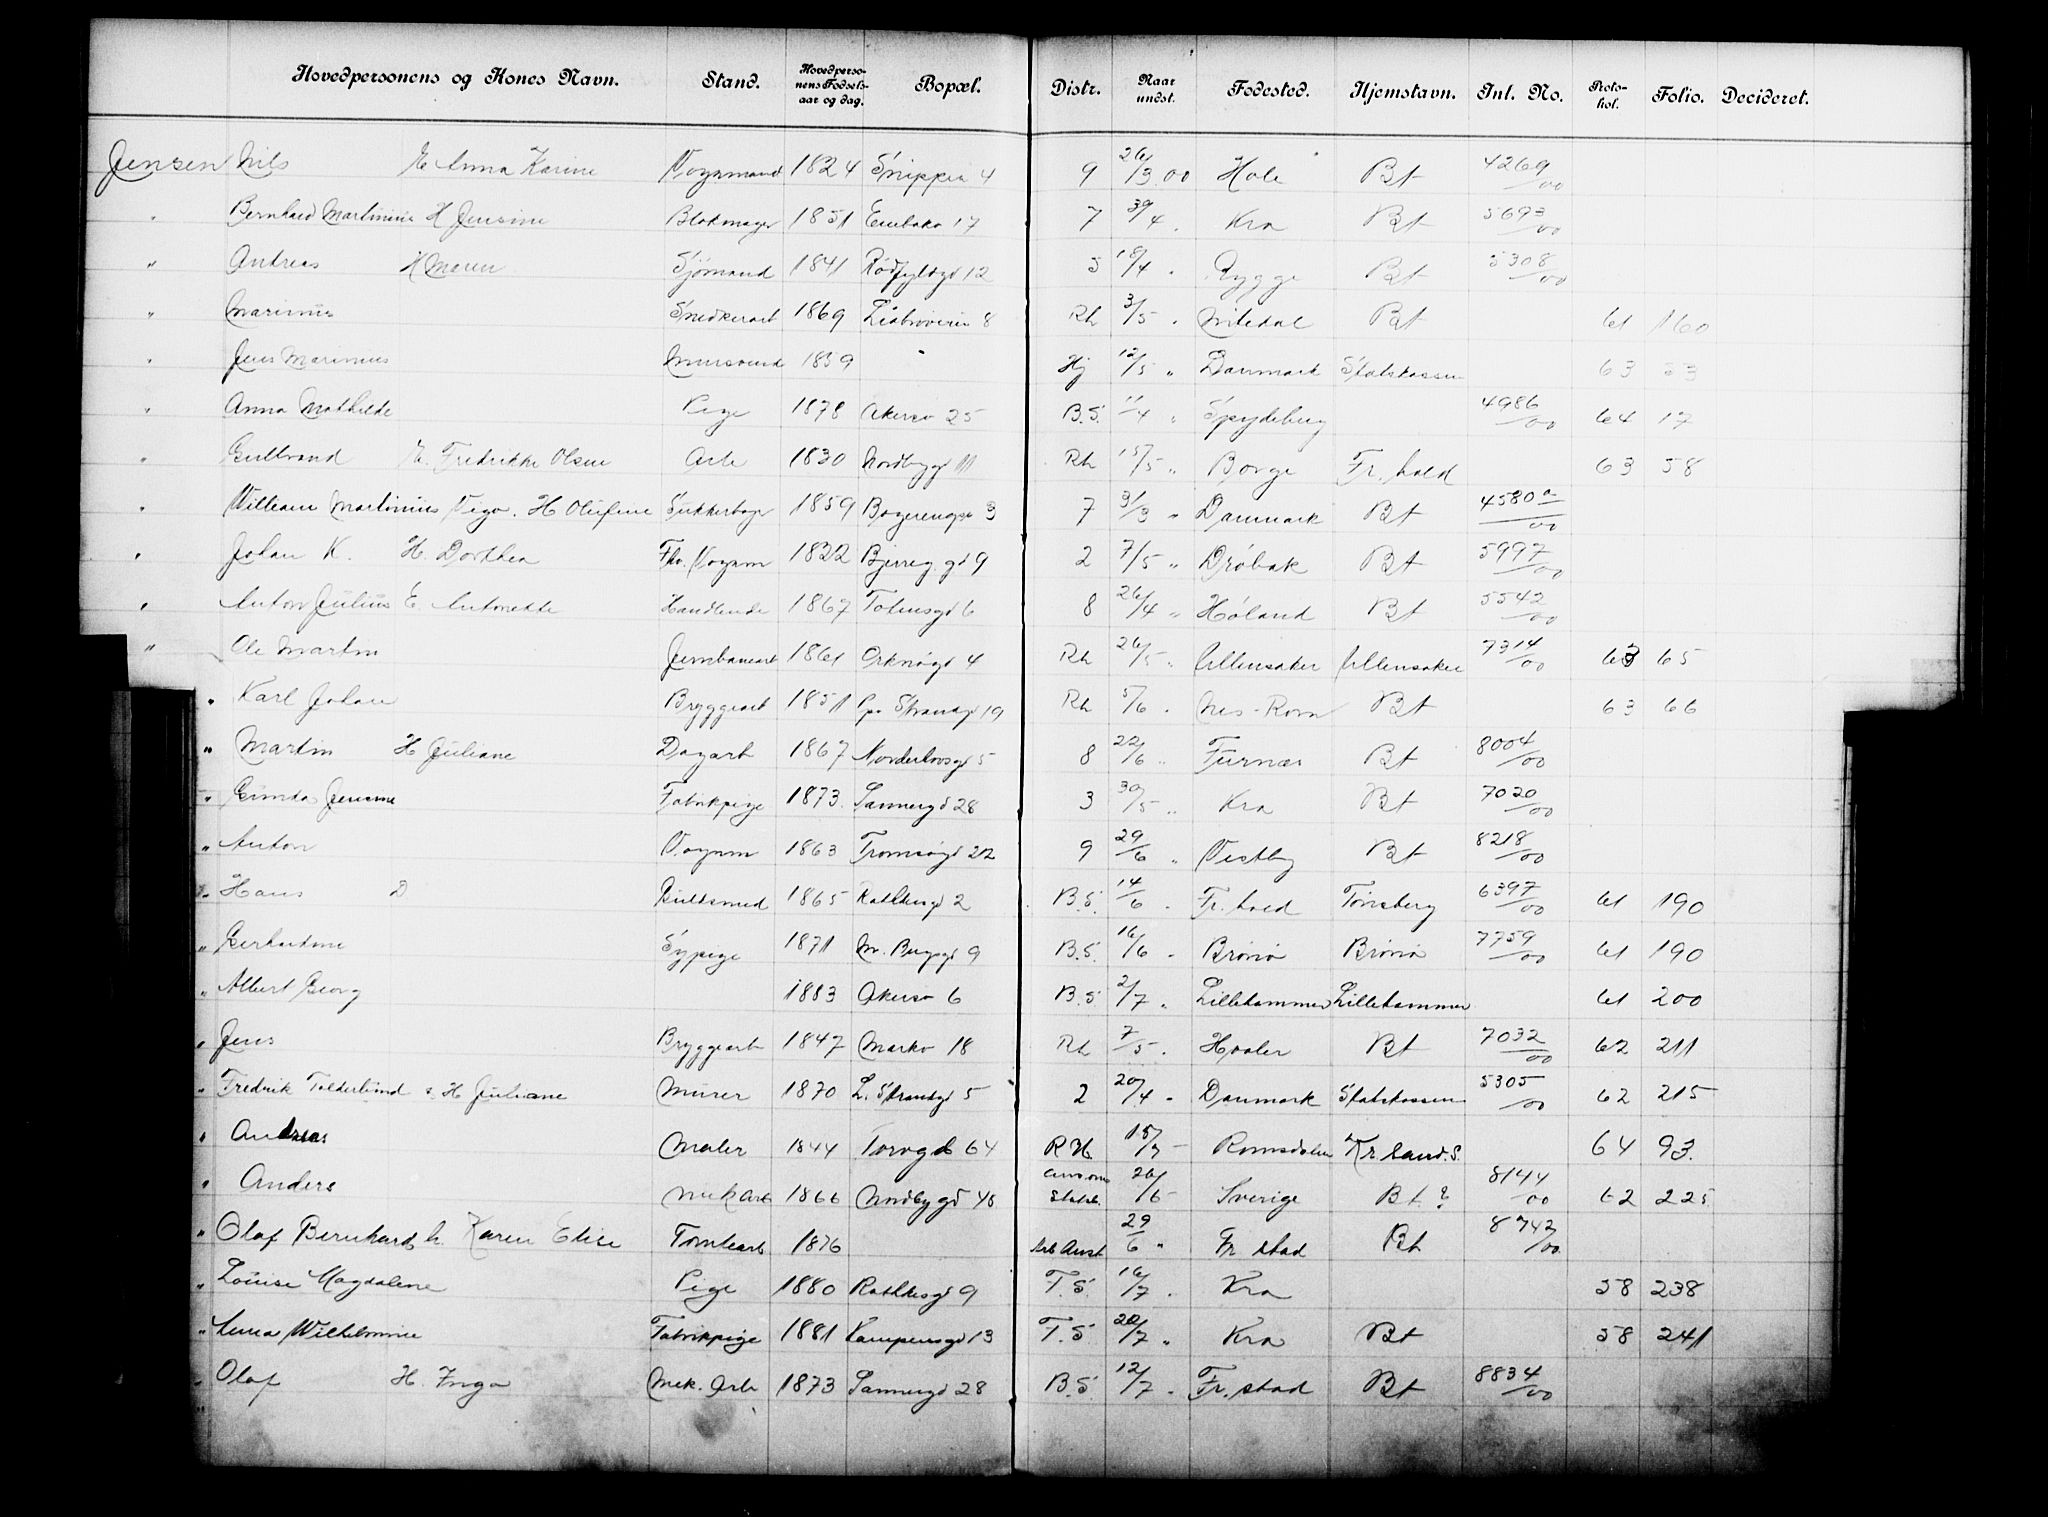 Hovedpersonens og Kones Navn. Stand. Hovedpersonens Fødselsaar og dag. Bopæl. Distr. Naar undst. Fødested. Hjemstavn. Inl. No. Protokol. Folio. Decideret.
Jensen Nils E Anna Karine Vognmand 1824 Snippen 4 9 26/3 00 Hole Bt 4269/00
" Bernhard Martinius H Jensine Blokmager 1851 17 7 Kra Bt 5693/00
" Andreas H Maren Sjømand 1841 Rødfyldgd 12 5 18/4 Rygge Bt 5308/00
" Marinius Snedkerarb 1869 8 Rh 3/5 " Nitedal Bt 61 160
" Jens Marinius Mursvend 1859 " Hj 12/5 " Danmark Statskassen 63 53
" Anna Mathilde Pige 1878 Akersv 25 B.S. 11/4 " Spydeberg 4986/00 64 17
" Gulbrand E. Fredrikke Olsen Arb 1830 Nordbygd 11 Rh 15/5 " Borge Fr. hald 63 58
" William Martinius Vigo. H Olufine Sukkerbagr 1859 3 7 31/3 " Danmark Bt 4580 a/00
" Johan K. H. Dorthea Fhv. Vognm 1822 Bjerreg. gd 9 2 7/5 " Drøbak Bt 5997/00
" Anton Julius E. Antonette Handlende 1867 Totensgd 6 8 26/4 " Høland Bt 5542/00
" Ole Martin Jernbanearb 1861 Orknøgd 4 Rh 26/5 " Ullensaker Ullensaker 7314/00 63 65
" Karl Johan Bryggearb 1851 Strandgd 19 Rh 5/6 " Nes-Rom Bt 63 66
" Martin H Juliane Dagarb 1867 Norderhovsgd 5 8 22/6 " Furnæs Bt 8004/00
" Gunda Jensine Fabrikpige 1873. Sannergd 28 3 30/5 " Kra Bt 7020/00
" Anton Vognm 1863 Tromsøgd 22 9 29/6 " Vestby Bt 8218/00
" Hans D Guldsmed 1865 Rathkesgd 2 B.S. 14/6 " Fr. hald Tønsberg 6397/00 61 190
" Gerhardine Sypige 1871 M. Bergsgd 9 B.S. 16/6 " Brønø Brønø 7759/00 61 190
" Albert Georg 1883 Akersv 6 B.S 2/7 " Lillehammer Lillehammer 61 200
" Jens Bryggearb 1847 Markv 18 Rh 7/5 " Hvaler Bt 7032/00 62 211
" Fredrik Tolderlund H Juliane Murer 1870 L. Strandgd 5 2 20/4 " Danmark Statskassen 5305/00 62 215
" Andreas Maler 1844 Torvgd 64 RH. 15/7 - Romsdalen Kr. sand. S. 64 93.
" Anders Mek Arb 1866 Nordbygd 48 26/6 - Sverige Bt ? 8144/00 62 225
" Olaf Bernhard h. Karen Elise Tomtearb 1876 Arb Anst 29/6 " Fr stad Bt 8742/00
" Louise Magdalene Pige 1880 Rathkesgd 9 T.S. 16/7 " Kra 58 238
" Anna Wilhelmine Fabrikpige 1881 Kampensgd 13 T.S 20/7 " Kra Bt 58 241
" Olaf H. Inga Mek. Arb 1873 Sannergd 28 B.S. 12/7 " Fr. stad Bt 8834/00
"